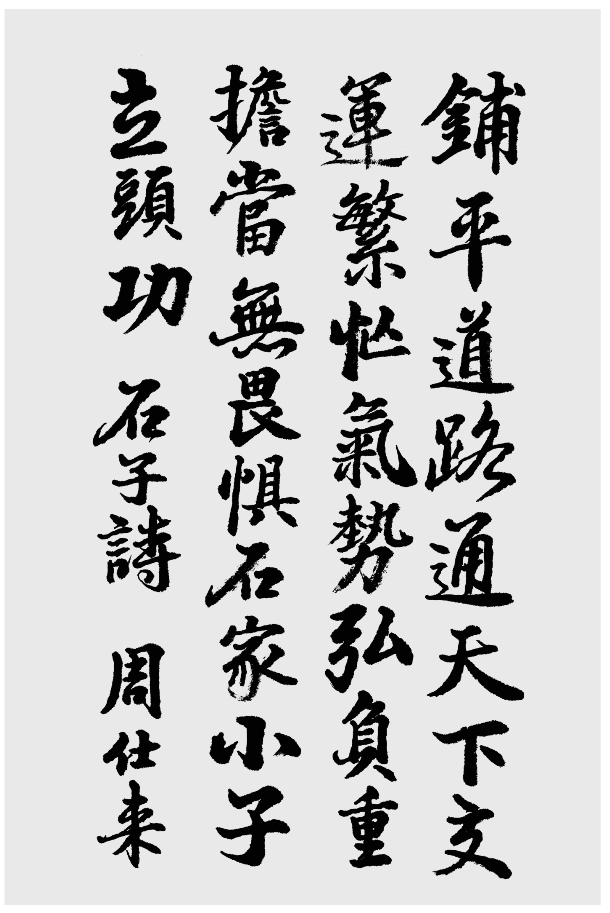 鋪平道路通天下交
運繁忙氣勢弘負重
擔當無畏懼石家小子
立頭功 石子詩 周仕来